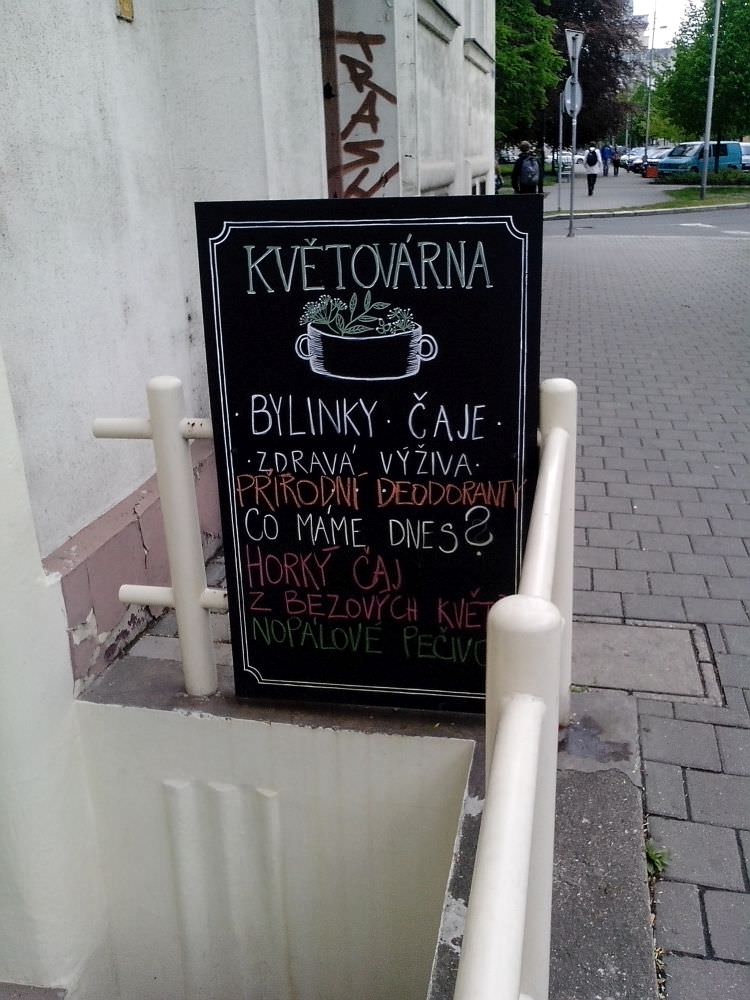 TRASH
KVĚTOVÁRNA
· BYLINKY · ČAJE ·
· ZDRAVÁ VÝŽIVA ·
PŘÍRODNÍ DEODORANTY
CO MÁME DNES?
HORKÝ ČAJ
Z BEZOVÝCH KVĚTŮ
NOPÁLOVÉ PEČIVO